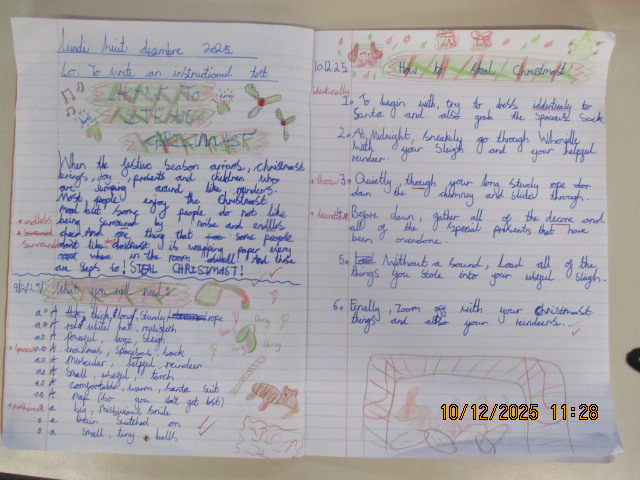 Lundi huit decmbre 2025
Lo: To write an instructional text
HOW TO
STEAL
CHRISTMAS!
When the festive season arrives, Christmas
brings, joy, presents and children who
are jumping around like reindeers.
Most people enjoy the Christmas
but some people do not like
being surround by noise and endless
thing that some people
don't like is wrapping paper every
where in the room as well! And these
are steps to! STEAL CHRISTMAS!
9/12/25 What you will need:
A thick, long, sturdy rope
A red white hat, realistech
A powerful, large, sleigh
A enormous, spacsous, sack
A Muscular, helpful, reindeer
A Small, useful, torch
A comfortable, warm, Santa suit
A map (so you don't get lost)
a big, mischievous smile
a brain switched on
a small, tiny bells
10.12.25 How to steal Christmas!
identically
1. To begin with, try to dress identicely to
Santa and also grab the spacious sack.
2. At Midnight, sneakely go through Whoville
with your Sleigh and your helpful
reindeer.
3. Quietly through, your long sturdy rope dor
dwn the chimney and slide through.
4. Before dawn, gather all of the decore and
all of the special presents that have
been overdone.
5. Without a sound, Load all of the
things you stole into your useful sleigh.
6. Finally, zoom off with your Christmast
things and also your reindeers.
10/12/2025 11:28